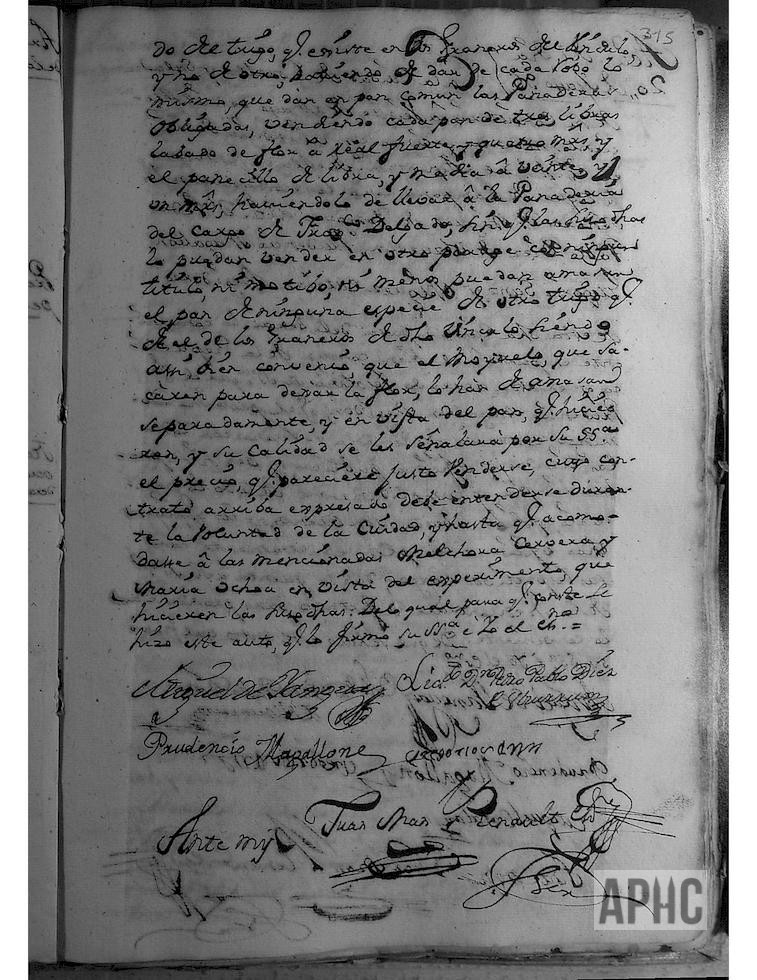 315
do de trigo, q.e existe en los Graneros del Vinculo,
y no de otro, haviendo de dar de cada robo lo
mismo, que dan en pan comun las Panaderas
obligadas, vendiendo cada pan de tres libras
labado de flor a real fuerte, y quatro mrs, y
el panecillo de libra, y media â veinte, y
un mrs, haviendolo de llevar â la Panaderia
del cargo de Fran.co Delgado, sin q.e las suso dhas
lo puedan vender en otro parage con ningun
titulo, ni motibo, ni menos puedan amasar
el pan de ninguna especie de otro trigo q.e
de el de los Graneros de dho Vinculo, siendo
assi bien convenio, que el Moyuelo, que sa-
caren para dejar la flor, lo han de amasar
separadamente, y en vista del pan, q.e hicie-
ren, y su Calidad se les señalara por su SS.a
el precio, q.e pareciere justo venderse, cuyo con-
trato arriba expresado debe entenderse duran-
te la Voluntad de la Ciudad, y hasta q.e acomo-
dasse â las mencionadas Melchora Cervera y
Maria Ochoa en vista del experimento, que
hicieren las suso dhas. Delo qual para q.e conste se
hizo este auto, q.e lo firmó su SS.a è Yo el ess.no =
Lic.do D.n Pedro Pablo Diez
Prudencio Magallon
Juan Mar
Ante my
APHC